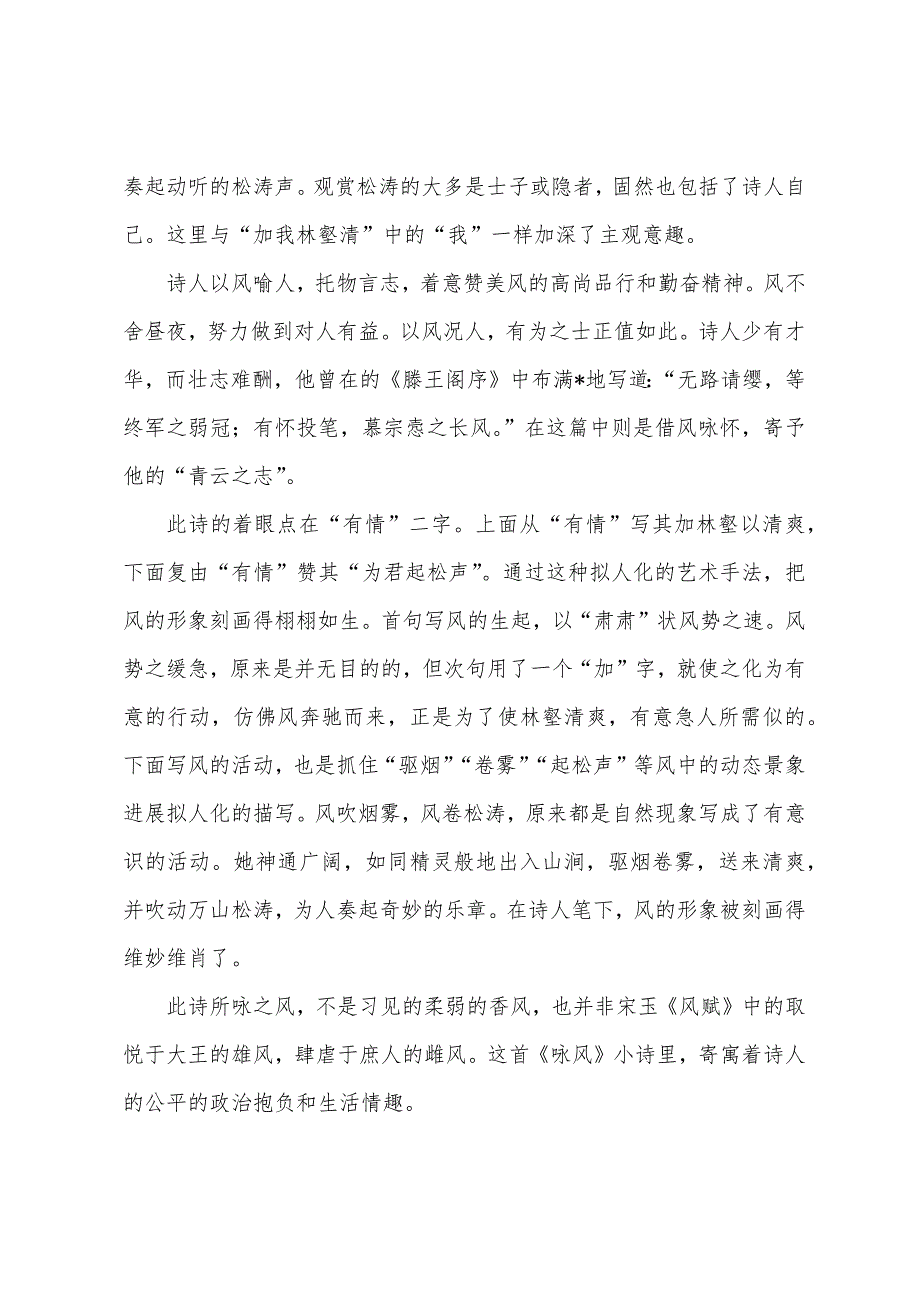 奏起动听的松涛声。观赏松涛的大多是士子或隐者，固然也包括了诗人自
己。这里与“加我林壑清”中的“我”一样加深了主观意趣。
诗人以风喻人，托物言志，着意赞美风的高尚品行和勤奋精神。风不
舍昼夜，努力做到对人有益。以风况人，有为之士正值如此。诗人少有才
华，而壮志难酬，他曾在的《滕王阁序》中布满*地写道：“无路请缨，等
终军之弱冠；有怀投笔，慕宗悫之长风。”在这篇中则是借风咏怀，寄予
他的“青云之志”。
此诗的着眼点在“有情”二字。上面从“有情”写其加林壑以清爽，
下面复由“有情”赞其“为君起松声”。通过这种拟人化的艺术手法，把
风的形象刻画得栩栩如生。首句写风的生起，以“肃肃”状风势之速。风
势之缓急，原来是并无目的的，但次句用了一个“加”字，就使之化为有
意的行动，仿佛风奔驰而来，正是为了使林壑清爽，有意急人所需似的。
下面写风的活动，也是抓住“驱烟”“卷雾”“起松声”等风中的动态景象
进展拟人化的描写。风吹烟雾，风卷松涛，原来都是自然现象写成了有意
识的活动。她神通广阔，如同精灵般地出入山涧，驱烟卷雾，送来清爽，
并吹动万山松涛，为人奏起奇妙的乐章。在诗人笔下，风的形象被刻画得
维妙维肖了。
此诗所咏之风，不是习见的柔弱的香风，也并非宋玉《风赋》中的取
悦于大王的雄风，肆虐于庶人的雌风。这首《咏风》小诗里，寄寓着诗人
的公平的政治抱负和生活情趣。